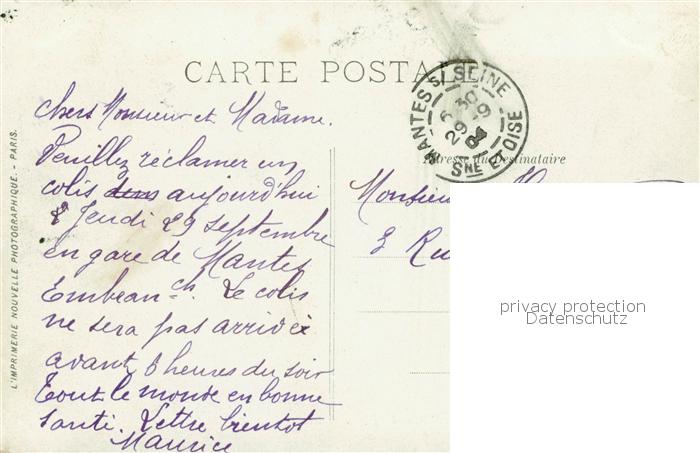 CARTE POSTALE
MANTES S/ SEINE
6 30
29 -9
04
SNE ET OISE
Adresse du Destinataire
Chers Monsieur et Madame.
Veuillez réclamer un
colis dans aujourd'hui
Jeudi 29 septembre
en gare de Mantes
Embran ch. Le colis
ne sera pas arrivée
avant 6 heures du soir
Tout le monde en bonne
santé. Lettre bientot
Maurice
Monsieur
3 Ru
L'IMPRIMERIE NOUVELLE PHOTOGRAPHIQUE. - PARIS.
privacy protection
Datenschutz